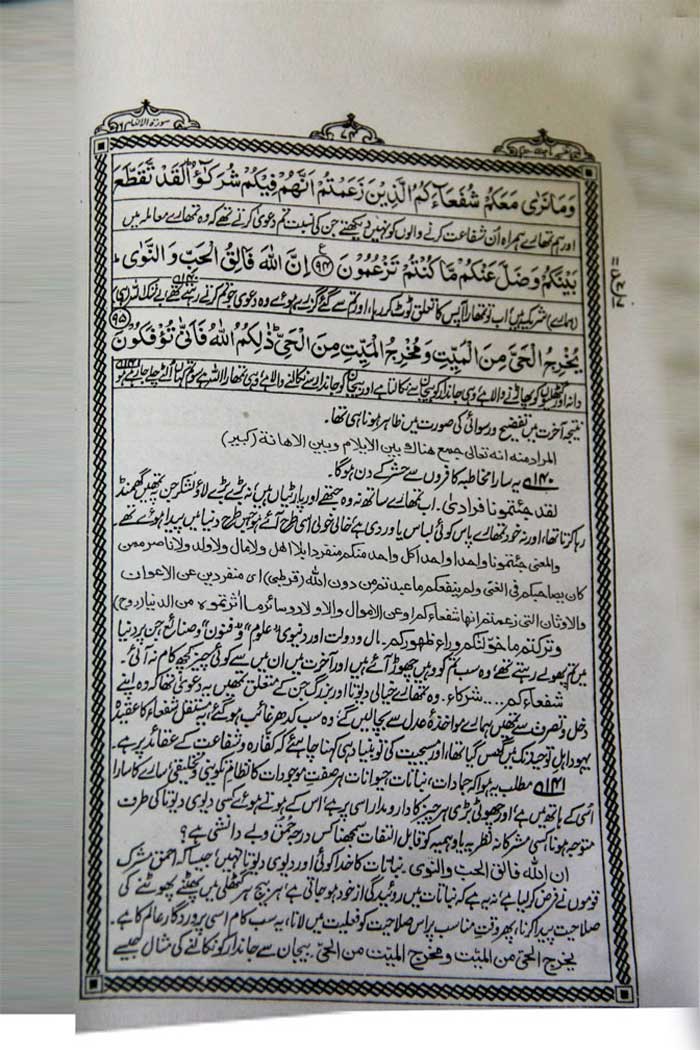 سورۃ الانعام ٦
وَمَا نَرٰى مَعَكُمْ شُفَعَآءَكُمُ الَّذِيْنَ زَعَمْتُمْ اَنَّهُمْ فِيْكُمْ شُرَكٰٓؤُا ۭ لَقَدْ تَّقَطَّعَ
اور ہم تمھارے ہمراہ اُن شفاعت کرنے والوں کو نہیں دیکھتے جن کی نسبت تم دعویٰ کرتے تھے کہ وہ تمھارے معاملہ میں
بَيْنَكُمْ وَضَلَّ عَنْكُمْ مَّا كُنْتُمْ تَزْعُمُوْنَ ﴿٩٤﴾ اِنَّ اللّٰهَ فَالِقُ الْحَبِّ وَالنَّوٰى ۭ
(ہمارے) شریک ہیں اب تو تمھارا آپس کا تعلق ٹوٹ کر رہا، اور تم سے گئے گزرے ہوئے وہ دعوی جو تم کرتے رہتے تھے بے شک اللہ (ہی)
يُخْرِجُ الْحَيَّ مِنَ الْمَيِّتِ وَمُخْرِجُ الْمَيِّتِ مِنَ الْحَيِّ ۭ ذٰلِكُمُ اللّٰهُ فَاَنّٰى تُؤْفَكُوْنَ ﴿٩٥﴾
دانہ اور گٹھلیوں کو پھاڑنے والا ہے وہی جاندار کو بیجان سے نکالتا ہے اور بیجان کو جاندار سے نکالنے والا ہے وہی تمھارا اللہ ہے سو تم کہاں اُلٹے چلے جا رہے ہو
نتیجۃً آخرت میں تفضیح و رسوائی کی صورت میں ظاہر ہونا ہی تھا۔
المراد منه انه تعالى جمع هناك بين الايلام وبين الاهانة (كبير)
۱۴۰ یہ سارا مخاطبہ کافروں سے حشر کے دن ہوگا۔
لقد جئتمونا فرادىٰ۔ اب تمھارے ساتھ نہ وہ جتھے اور پارٹیاں ہیں، نہ بڑے بڑے لاؤ لشکر جن پر تمھیں گھمنڈ
رہا کرتا تھا، اور نہ خود تمھارے پاس کوئی لباس یا وردی ہے خالی خولی اسی طرح آئے ہو جس طرح دنیا میں پیدا ہوئے تھے۔
والمعنى جئتمونا واحدا واحدا كل واحد منكم منفردا بلا اهل ولا مال ولا ولد ولا ناصر ممن
كان يصاحبكم فى الغى ولم ينفعكم ما عبدتم من دون الله (قرطبى) اى منفردين عن الاعوان
والاوثان التى زعمتم انها شفعاءكم او عن الاموال والاولاد وسائر ما اثرتموه من الدنيا (روح)
وتركتم ما خوّلنكم وراء ظهوركم۔ مال و دولت اور دنیوی ”علوم“ و ”فنون“ و صنائع جن پر دنیا
میں تم پھولے رہتے تھے، وہ سب تم کو وہیں چھوڑ آئے ہیں اور آخرت میں ان میں سے کوئی چیز کچھ کام نہ آئی۔
شفعاءكم .... شركاء۔ وہ تمھارے خیالی دیوتا اور بزرگ جن کے متعلق تمھیں یہ دعویٰ تھا کہ وہ اپنے
دخل و تصرف سے تمھیں ہمارے مواخذۂ عدل سے بچا لیں گے، وہ سب کدھر غائب ہو گئے؟ یہ مستقل شفعاء کا عقیدہ
یہود اہل توحید تک میں گھس گیا تھا، اور مسیحیت کی تو بنیاد ہی کہنا چاہئے کہ کفّارہ و شفاعت کے عقائد پر ہے۔
۱۴۱ مطلب یہ ہوا کہ جمادات، نباتات، حیوانات ہر صفتِ موجودات کا نظامِ تکوینی و تخلیقی سارے کا سارا
اسی کے ہاتھ میں ہے، اور چھوٹی بڑی ہر چیز کا دار و مدار اسی پر ہے، اس کے ہوتے ہوئے کسی دیوی دیوتا کی طرف
متوجہ ہونا، کسی مشرکانہ نظریہ یا وہمیہ کو قابل التفات سمجھنا کس درجہ حُمق و بے دانشی ہے؟
ان الله فالق الحب والنوى۔ نباتات کا خدا کوئی اور دیوی دیوتا نہیں، جیسا کہ احمق مشرک
قوموں نے فرض کر لیا ہے، نہ یہ ہے کہ نباتات میں روئیدگی از خود ہو جاتی ہے، ہر بیج ہر گٹھلی میں پھٹنے پھوٹنے کی
صلاحیت پیدا کرنا، پھر وقتِ مناسب پر اس صلاحیت کو فعلیت میں لانا، یہ سب کام اسی پروردگارِ عالم کا ہے۔
يخرج الحيّ من الميّت ومخرج الميّت من الحيّ۔ بیجان سے جاندار کو نکالنے کی مثال جیسے